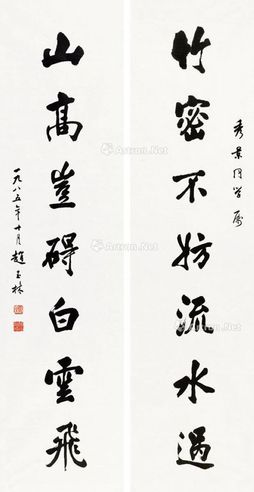 秀业同学属
竹密不妨流水过
山高岂碍白云飞
一九八五年十月赵玉林
Artron.Net